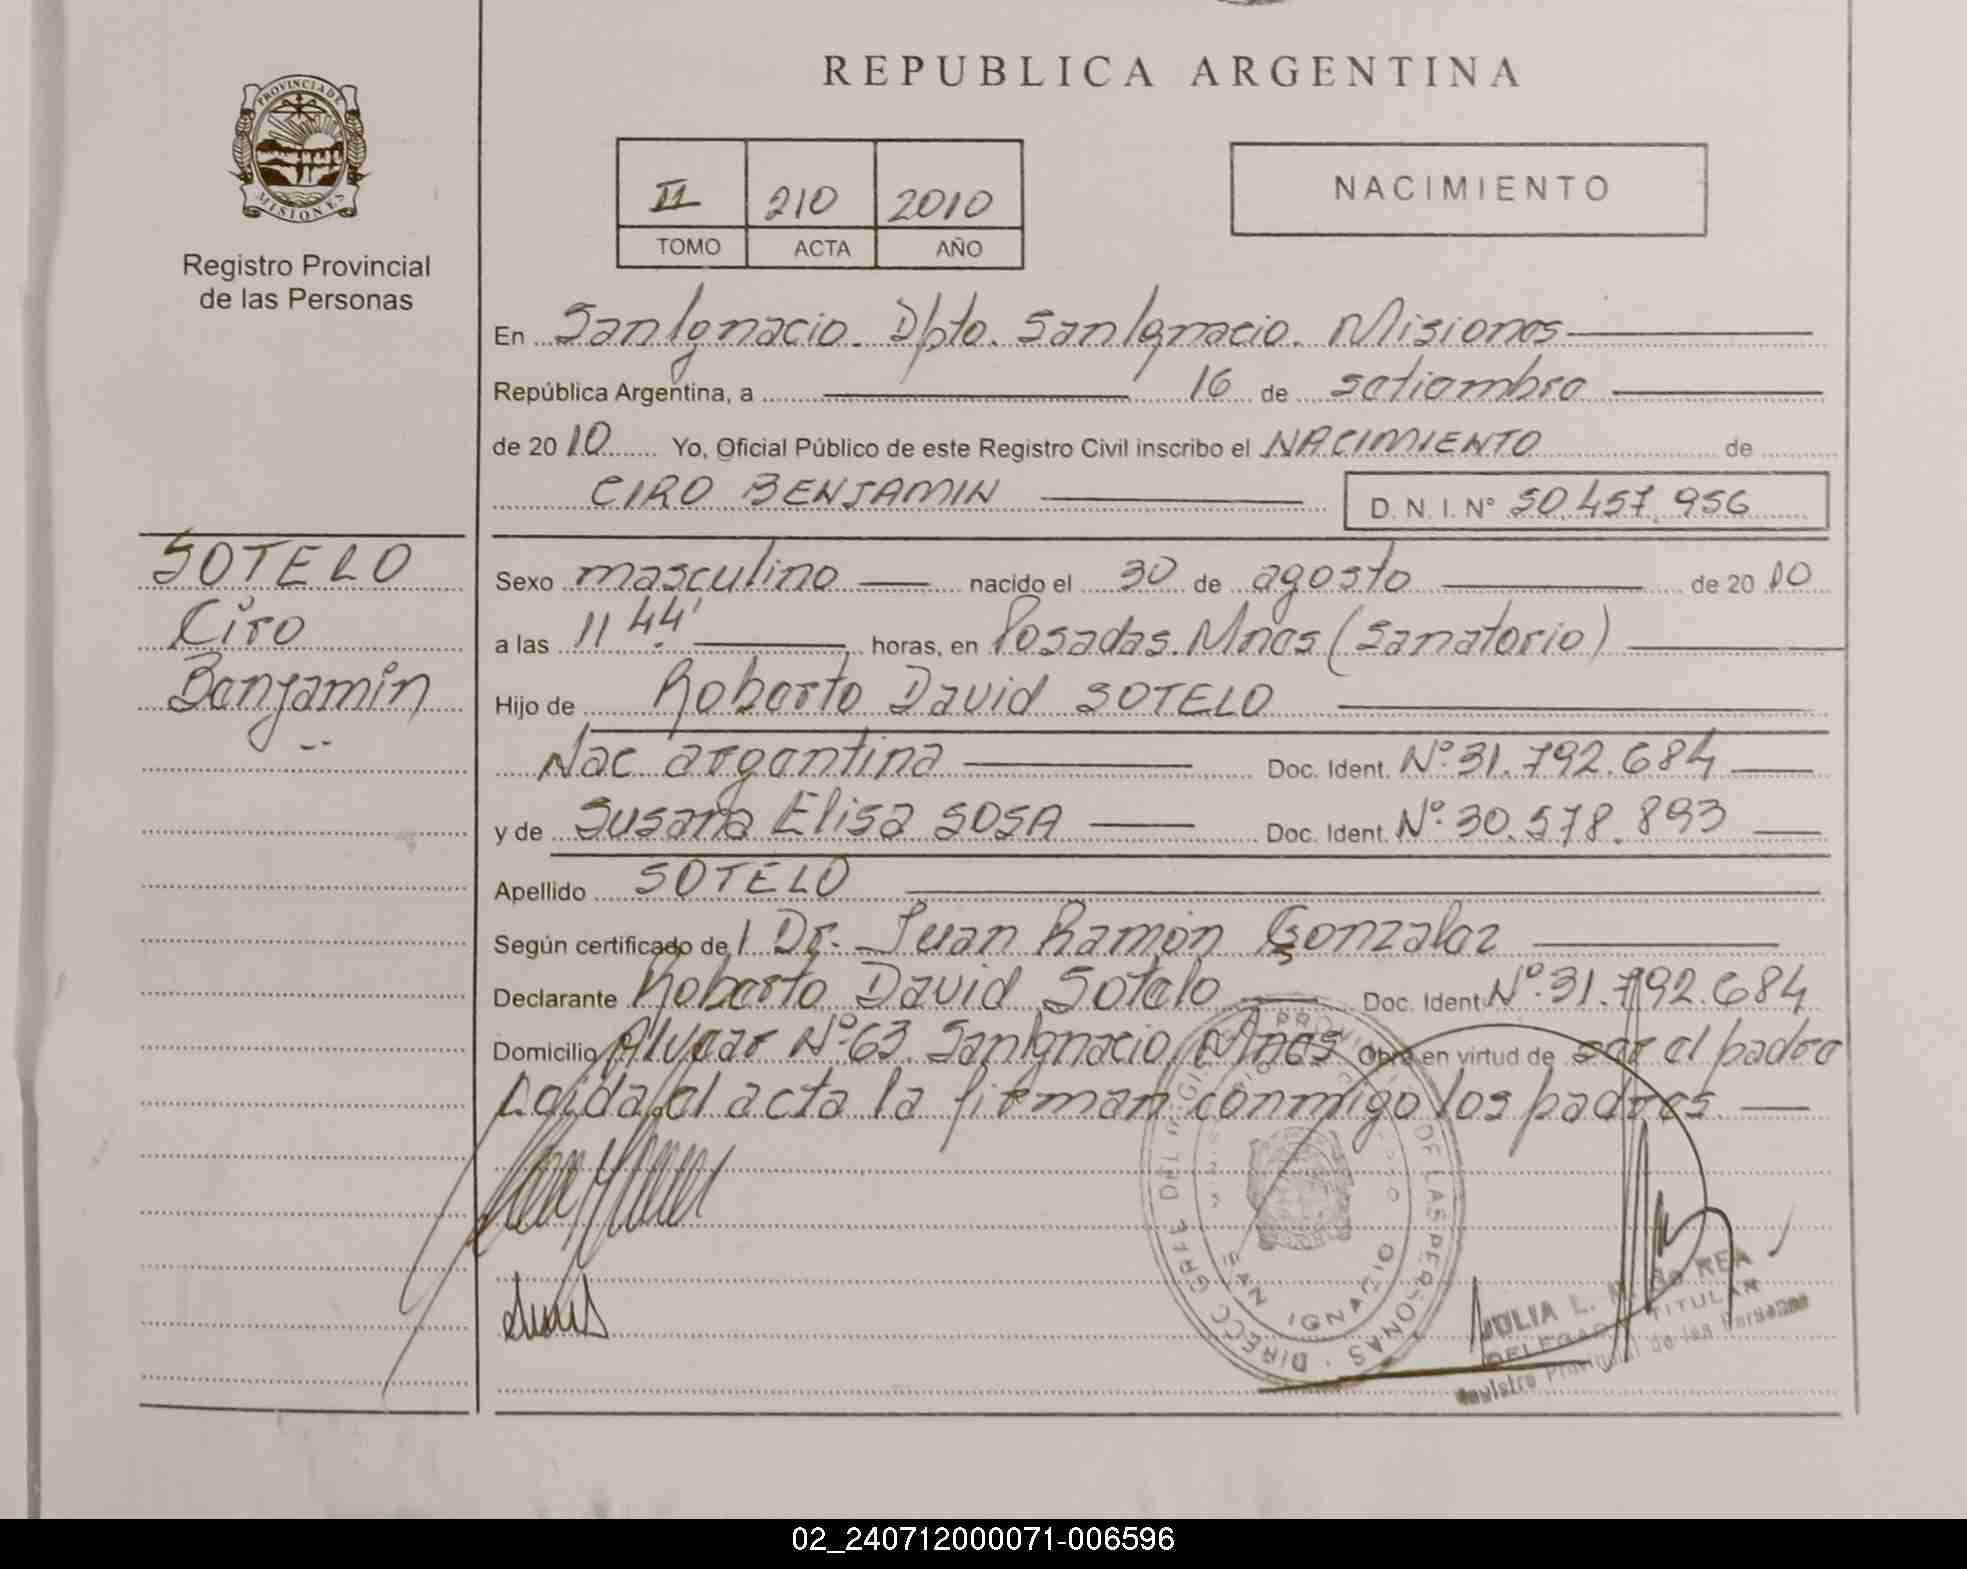 PROVINCIA DE
MISIONES
Registro Provincial
de las Personas
REPUBLICA ARGENTINA
II 210 2010
TOMO ACTA AÑO
NACIMIENTO
En San Ignacio. Dpto. San Ignacio. Misiones
República Argentina, a 16 de setiembre
de 2010 Yo, Oficial Público de este Registro Civil inscribo el NACIMIENTO de
CIRO BENJAMIN D. N. I. Nº 50.457.956
SOTELO
Ciro
Benjamín
Sexo masculino nacido el 30 de agosto de 2010
a las 11 44' horas, en Posadas. Mnes (Sanatorio)
Hijo de Roberto David SOTELO
Nac argentina Doc. Ident. Nº 31.792.684
y de Susana Elisa SOSA Doc. Ident. Nº 30.578.893
Apellido SOTELO
Según certificado de l Dr. Juan Ramón Gonzalez
Declarante Roberto David Sotelo Doc. Ident. Nº 31.792.684
Domicilio Alvear Nº 63 San Ignacio, Mnes Obra en virtud de ser el padre
Leida el acta la firman conmigo los padres
DIRECC GRLE DEL REGISTRO PROVINCIAL DE LAS PERSONAS
SAN IGNACIO
JULIA L. REA
DELEGADA TITULAR
Registro Provincial de las Personas
02_240712000071-006596